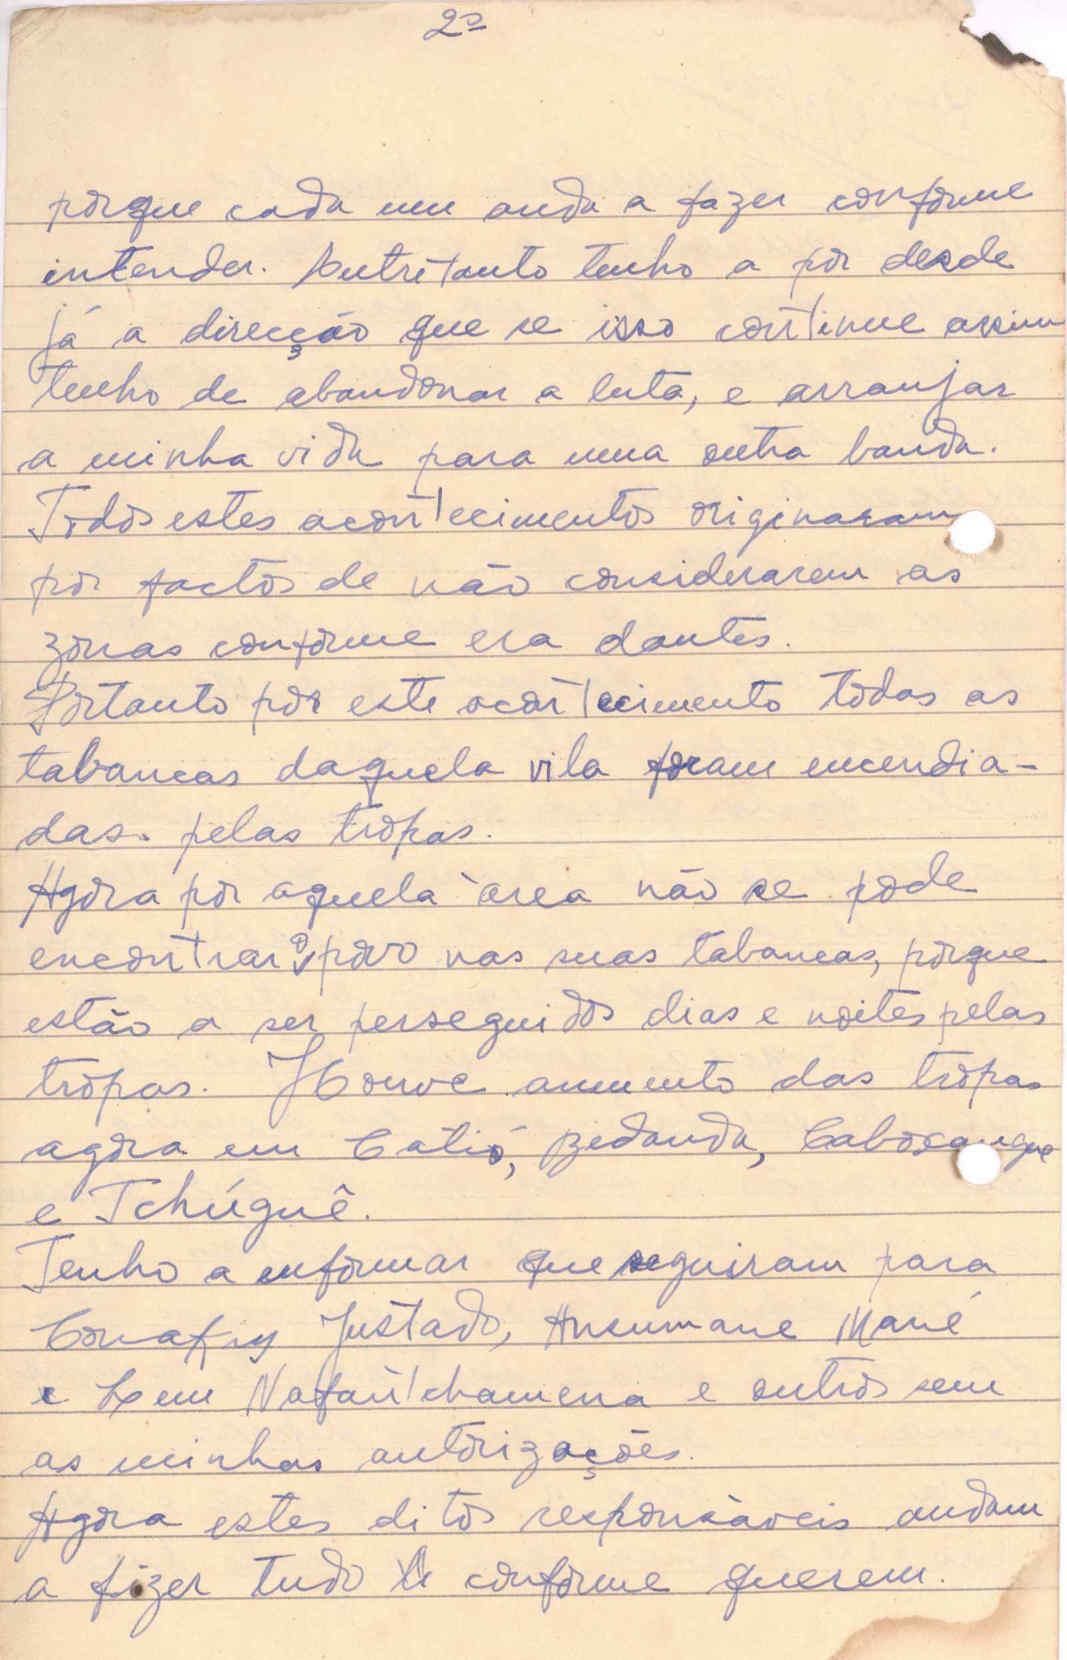 2º
porque cada um anda a fazer conforme
intender. Entretanto tenho a pôr desde
já a direcção que se isso continue assim
tenho de abandonar a luta, e arranjar
a minha vida para uma outra banda.
Todos estes acontecimentos originaram
por factos de não considerarem as
zonas conforme era dantes.
Portanto por este acontecimento todas as
tabancas daquela vila foram encendia-
das pelas tropas.
Agora por aquela àrea não se pode
encontrar o povo nas suas tabancas, porque
estão a ser perseguidos dias e noites pelas
tropas. Houve aumento das tropas
agora em Catió, Bedanda, Caboxanque
e Tchúguê.
Tenho a enformar que seguiram para
Conakry Justado, Ansumane Mané
e Lem Nafantchamena e outros sem
as minhas autorizações.
Agora estes ditos responsàveis andam
a fizer tudo conforme querem.